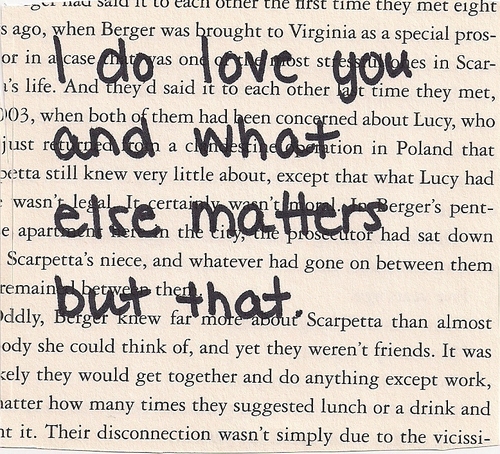 had said it to each other the first time they met eight
s ago, when Berger was brought to Virginia as a special pros-
I do love you
or in a case that was one of the most ones in Scar-
's life. And they'd said it to each other last time they met,
003, when both of them had been concerned about Lucy, who
and what
just returned from a clandestine operation in Poland that
petta still knew very little about, except that what Lucy had
wasn't legal. It certainly wasn't moral. In Berger's pent-
else matters
e apartment here in the city, the prosecutor had sat down
Scarpetta's niece, and whatever had gone on between them
remained between them.
but that.
Oddly, Berger knew far more about Scarpetta than almost
ody she could think of, and yet they weren't friends. It was
kely they would get together and do anything except work,
matter how many times they suggested lunch or a drink and
nt it. Their disconnection wasn't simply due to the vicissi-